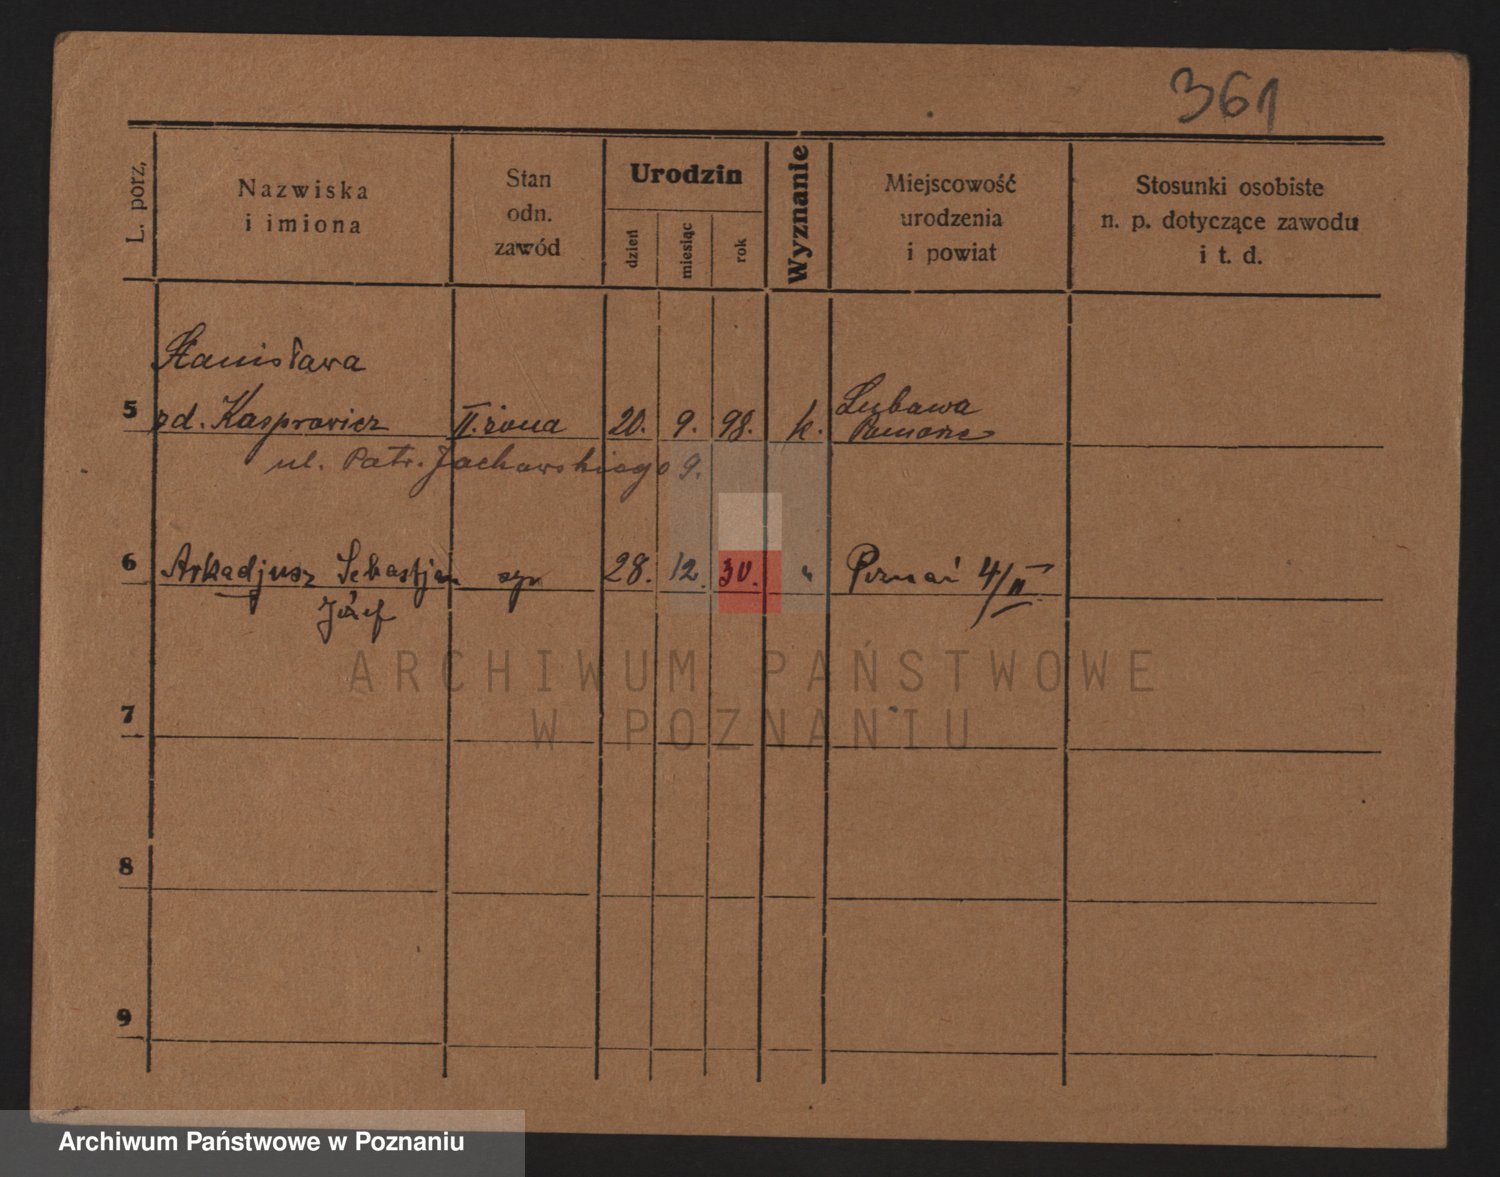 361
L. porz.
Nazwiska
i imiona
Stan
odn.
zawód
Urodzin
dzień
miesiąc
rok
Wyznanie
Miejscowość
urodzenia
i powiat
Stosunki osobiste
n. p. dotyczące zawodu
i t. d.
Stanisława
5 zd. Kasprowicz II. żona 20. 9. 98. k. Lubawa
Pomorze
ul. Patr. Jackowskiego 9.
6 Arkadjusz Sebastjan syn 28. 12. 30. " Poznań 4/II
Józef
7
8
9
ARCHIWUM PAŃSTWOWE
W POZNANIU
Archiwum Państwowe w Poznaniu